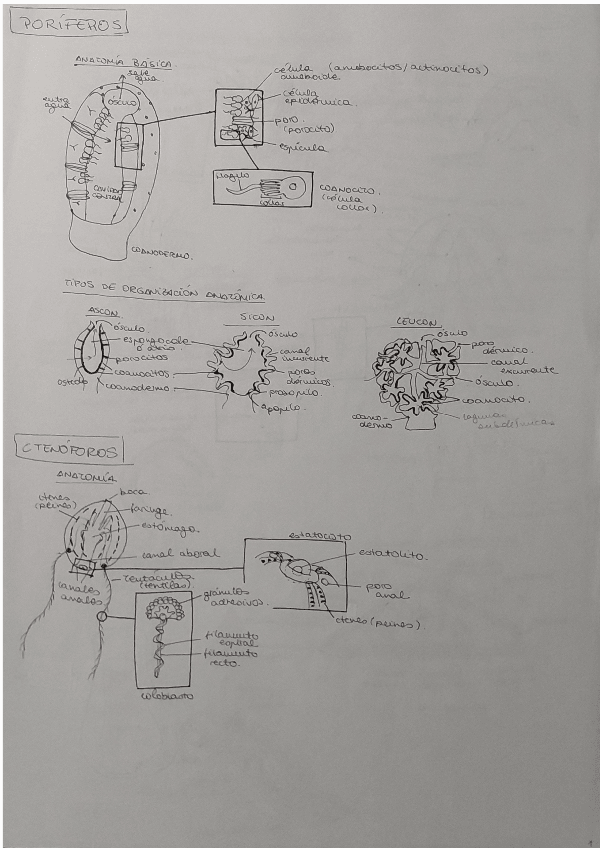 PORÍFEROS
ANATOMÍA BÁSICA
sale
agua
ósculo
entra
agua
cavidad
central
coanodermo.
célula (amebocitos/actinocitos)
ameboide.
célula
epidérmica.
poro
(porocito)
espícula
flagelo
collar
COANOCITO.
(célula
collar).
TIPOS DE ORGANIZACIÓN ANATÓMICA
ASCON
ósculo.
espongocele
o atrio
porocitos
coanocitos
coanodermo
ostiolo
SICON
ósculo
canal
incurrente
poros
dérmicos.
prosopilo
apopilo.
LEUCON
ósculo
poro
dérmico.
canal
excurrente
ósculo.
coanocito.
lagunas
subdérmicas
coano-
dermo
CTENÓFOROS
ANATOMÍA
boca
ctenes
(peines)
faringe.
estómago.
canal aboral
canales
anales
tentáculos
(tentilas)
gránulos
adhesivos.
filamento
espiral
filamento
recto.
coloblasto
estatocito
estatolito.
poro
anal
ctenes (peines)
1